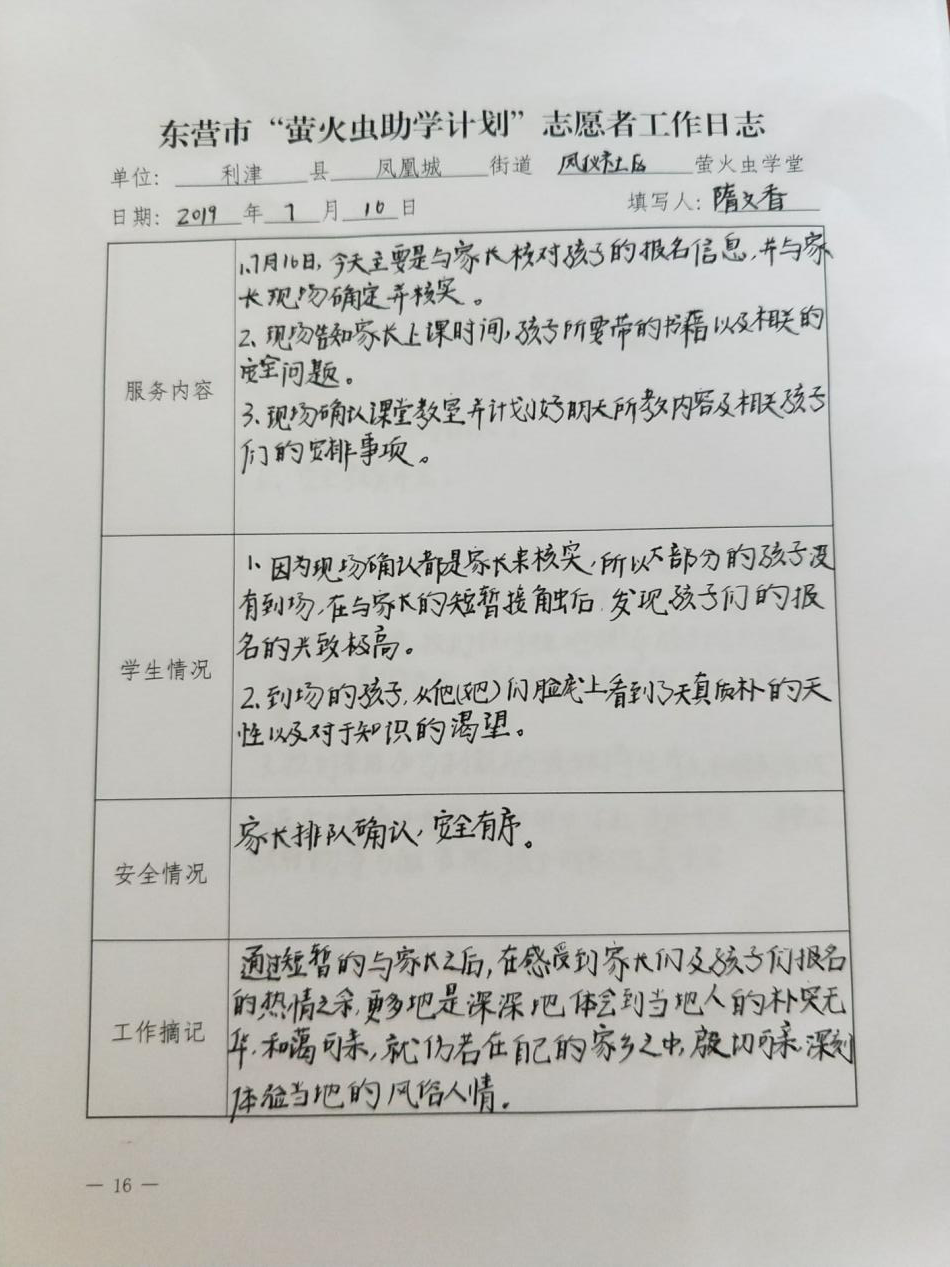 东营市“萤火虫助学计划”志愿者工作日志
单位: 利津 县 凤凰城 街道 凤仪社区 萤火虫学堂
日期: 2019 年 7 月 16 日 填写人: 隋文香
服务内容
1、7月16日，今天主要是与家长核对孩子的报名信息，并与家
长现场确定并核实。
2、现场告知家长上课时间，孩子所要带的书籍以及相关的
安全问题。
3、现场确认课堂教室并计划好明天所教内容及相关孩子
们的安排事项。
学生情况
1、因为现场确认都是家长来核实，所以大部分的孩子没
有到场，在与家长的短暂接触后，发现孩子们的报
名的兴致极高。
2、到场的孩子，从他(她)们脸庞上看到了天真质朴的天
性以及对于知识的渴望。
安全情况
家长排队确认，安全有序。
工作摘记
通过短暂的与家长之后，在感受到家长们及孩子们报名
的热情之余，更多地是深深地，体会到当地人的朴实无
华，和蔼可亲，就仿若在自己的家乡之中，殷切可亲，深刻
体验当地的风俗人情。
— 16 —